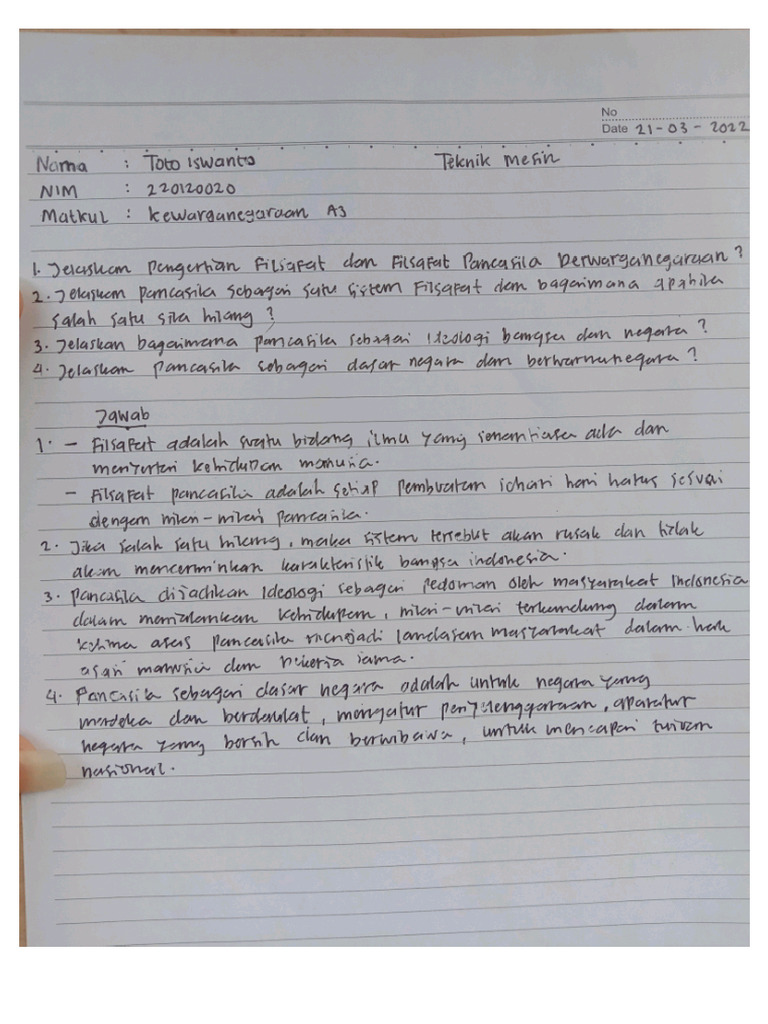 No
Date 21-03-2022
Nama : Toto Iswanto Teknik Mesin
NIM : 220120020
Matkul : Kewarganegaraan A3
1. Jelaskan pengertian Filsafat dan Filsafat Pancasila berwarganegaraan?
2. Jelaskan pancasila sebagai satu sistem Filsafat dan bagaimana apabila
salah satu sila hilang?
3. Jelaskan bagaimana pancasila sebagai Ideologi bangsa dan negara?
4. Jelaskan Pancasila sebagai dasar negara dan berwarnanegara?
Jawab
1. - Filsafat adalah suatu bidang ilmu yang senantiasa ada dan
menyertai kehidupan manusia.
- Filsafat pancasila adalah setiap pembuatan sehari hari harus sesuai
dengan nilai-nilai pancasila.
2. Jika salah satu hilang, maka sistem tersebut akan rusak dan tidak
akan mencerminkan karakteristik bangsa indonesia.
3. Pancasila dijadikan Ideologi sebagai pedoman oleh masyarakat Indonesia
dalam menjalankan kehidupan, nilai-nilai terkandung dalam
kelima asas pancasila menjadi landasan masyarakat dalam hak
asasi manusia dan bekerja sama.
4. Pancasila sebagai dasar negara adalah untuk negara yang
merdeka dan berdaulat, mengatur penyelenggaraan, aparatur
negara yang bersih dan berwibawa, untuk mencapai tujuan
nasional.